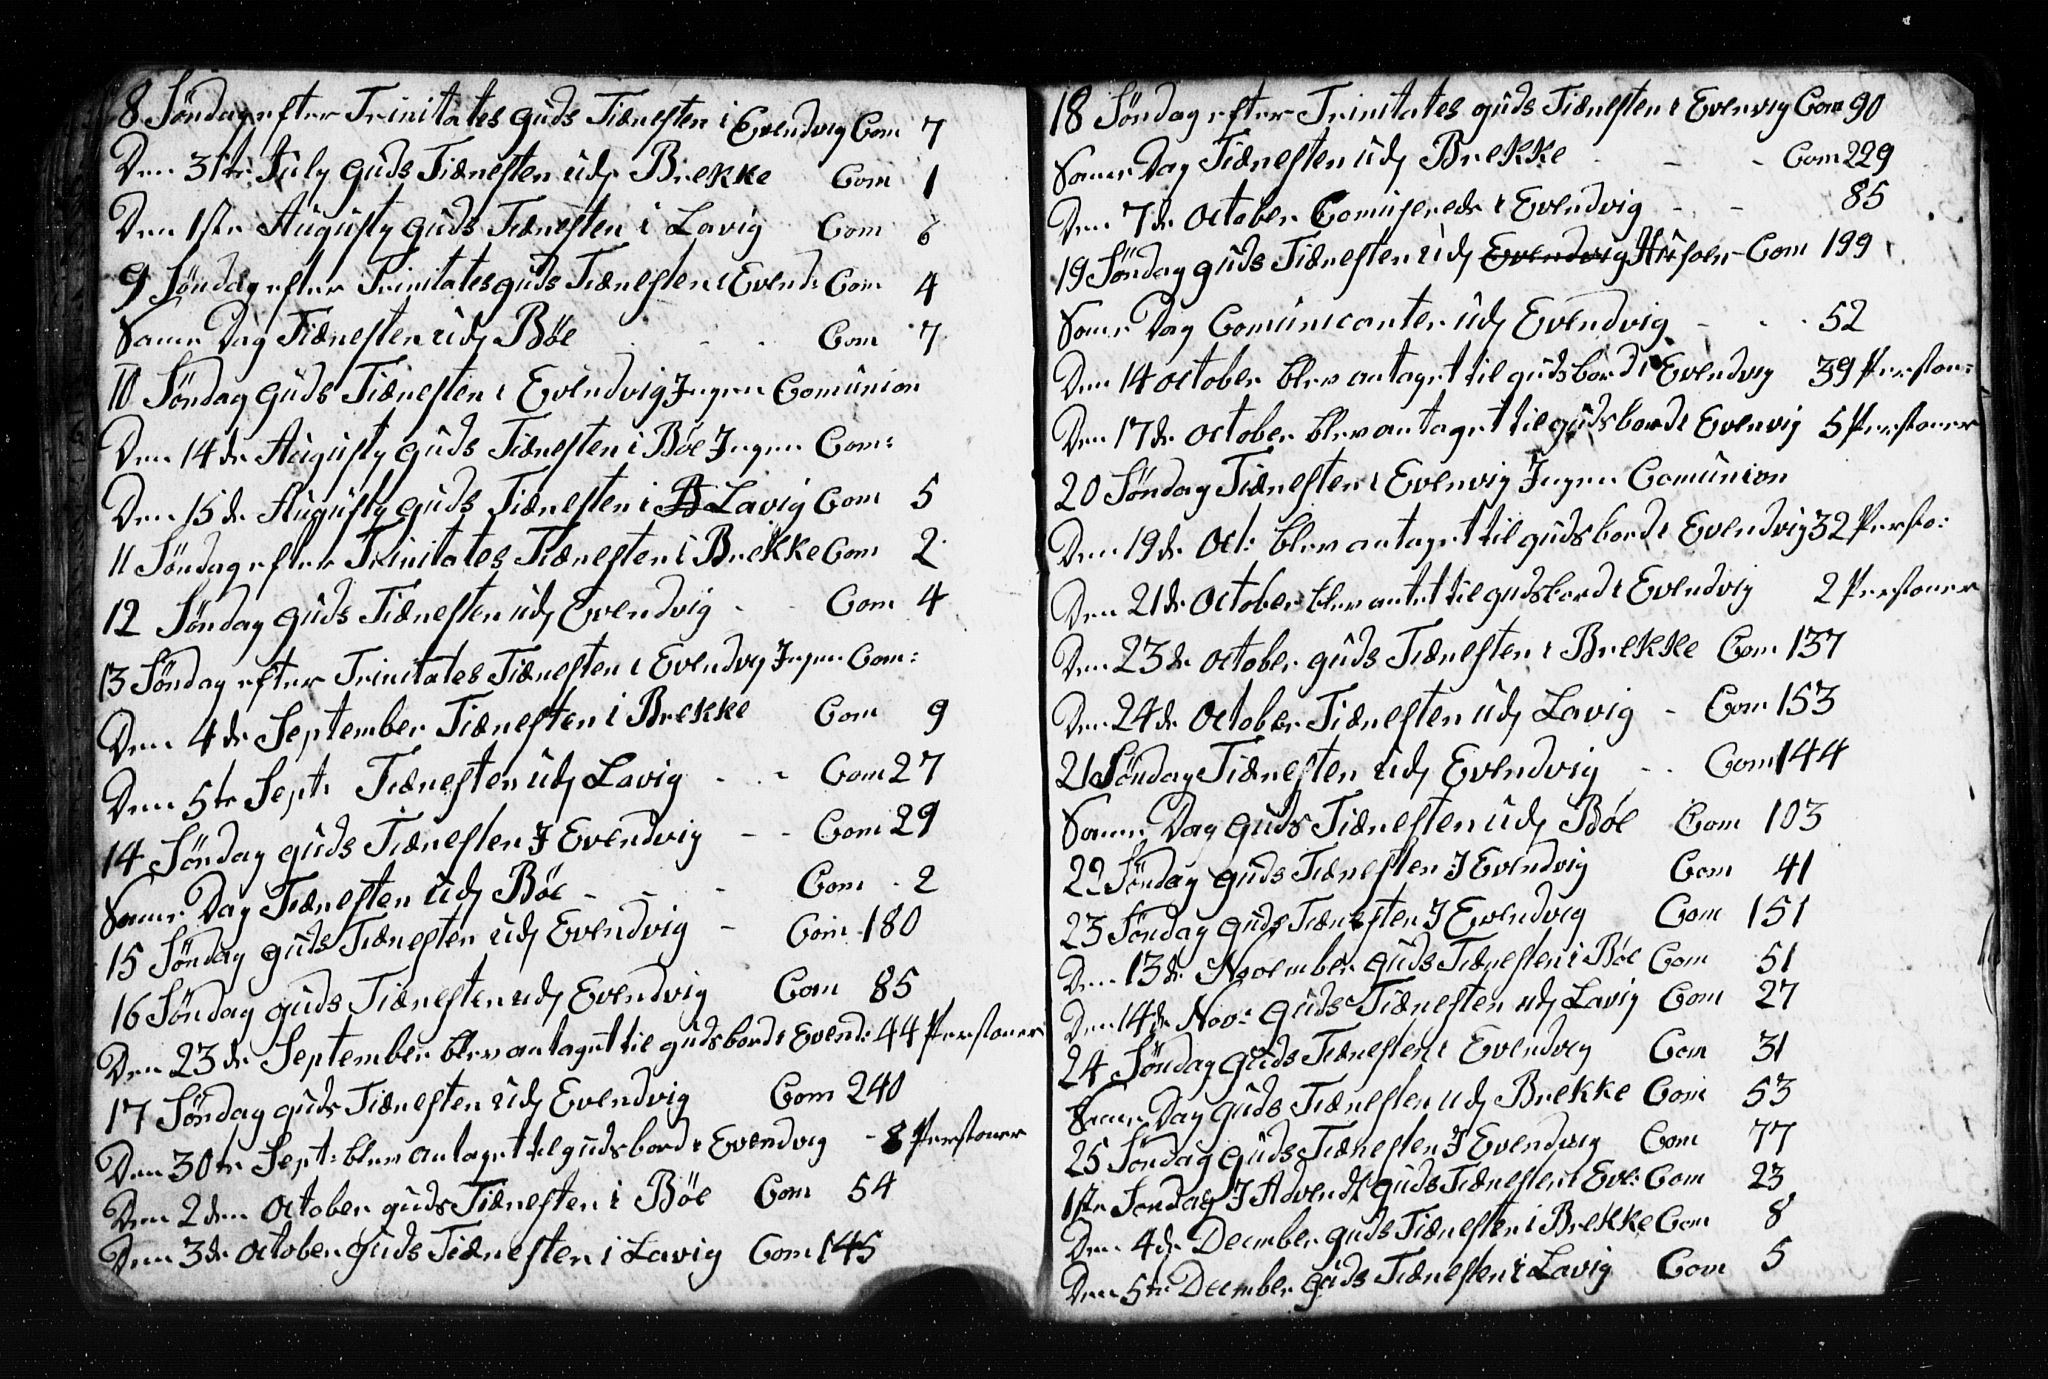 8 Søndag efter Trinitates guds Tiænesten i Evendvig Com 7
Den 31te July guds Tiænesten udj Brekke Com 1
Den 1ste Augusty guds Tiænesten i Lavig Com 6
9 Søndag efter Trinitates guds Tiænesten i Evend: Com 4
Same Dag Tiænesten udj Böe - - - Com 7
10 Søndag guds Tiænesten i Evendvig Ingen Comunion
Den 14de Augusty guds Tiænesten i Böe Ingen Com:
Den 15de Augusty guds Tiænesten i B Lavig Com 5
11 Søndag efter Trinitates Tiænesten i Brekke Com 2
12 Søndag guds Tiænesten udj Evendvig - - Com 4
13 Søndag efter Trinitates Tiænesten i Evendvig Ingen Com:
Den 4de September Tiænesten i Brekke Com 9
Den 5te Sept: Tiænesten udj Lavig - - Com 27
14 Søndag guds Tiænesten I Evendvig - - Com 29
Same Dag Tiænesten udj Böe - - - Com 2
15 Søndag guds Tiænesten udj Evendvig - Com 180
16 Søndag guds Tiænesten udj Evendvig Com 85
Den 23de September blev antaget til gudsbord i Evend: 44 Persioner
17 Søndag guds Tiænesten udj Evendvig Com 240
Den 30te Sept: blev antaget til gudsbord i Evendvig - 8 Persioner
Den 2den October guds Tiænesten i Böe Com 54
Den 3de October guds Tiænesten i Lavig Com 145
18 Søndag efter Trinitates guds Tiænesten i Evenvig Com 90
Same Dag Tiænesten udj Brekke - - - Com 229
Den 7de October Comuserede i Evendvig - - 85
19 Søndag guds Tiænesten udj Evendvig Husøen Com 199
Same Dag Comunicanter udj Evendvig - - - 52
Den 14 october blev antaget til gudsbord i Evendvig 39 Persion:
Den 17de october blev antaget til gudsbord i Evenvig 5 Persioner
20 Søndag Tiænesten i Evenvig Ingen Comunion
Den 19de Oct: blev antaget til gudsbord i Evendvig 32 Persio:
Den 21de October blev antet til gudsbord i Evendvig 2 Persioner
Den 23de october guds Tiænesten i Brekke Com 137
Den 24de October Tiænesten udj Lavig - Com 153
21 Søndag Tiænesten udj Evendvig - - Com 144
Same Dag guds Tiænesten udj Böe Com 103
22 Søndag guds Tiænesten I Evendvig Com 41
23 Søndag guds Tiænesten I Evendvig Com 151
Den 13de November guds Tiænesten i Böe Com 51
Den 14de Nov: guds Tiænesten udj Lavig Com 27
24 Søndag guds Tiænesten i Evendvig Com 31
Same Dag guds Tiænesten udj Brekke Com 53
25 Søndag guds Tiænesten I Evendvig Com 77
1ste Søndag I Advendt guds Tiænesten i Eve: Com 23
Den 4de December guds Tiænesten i Brekke Com 8
Den 5te December guds Tiænesten i Lavig Com 5